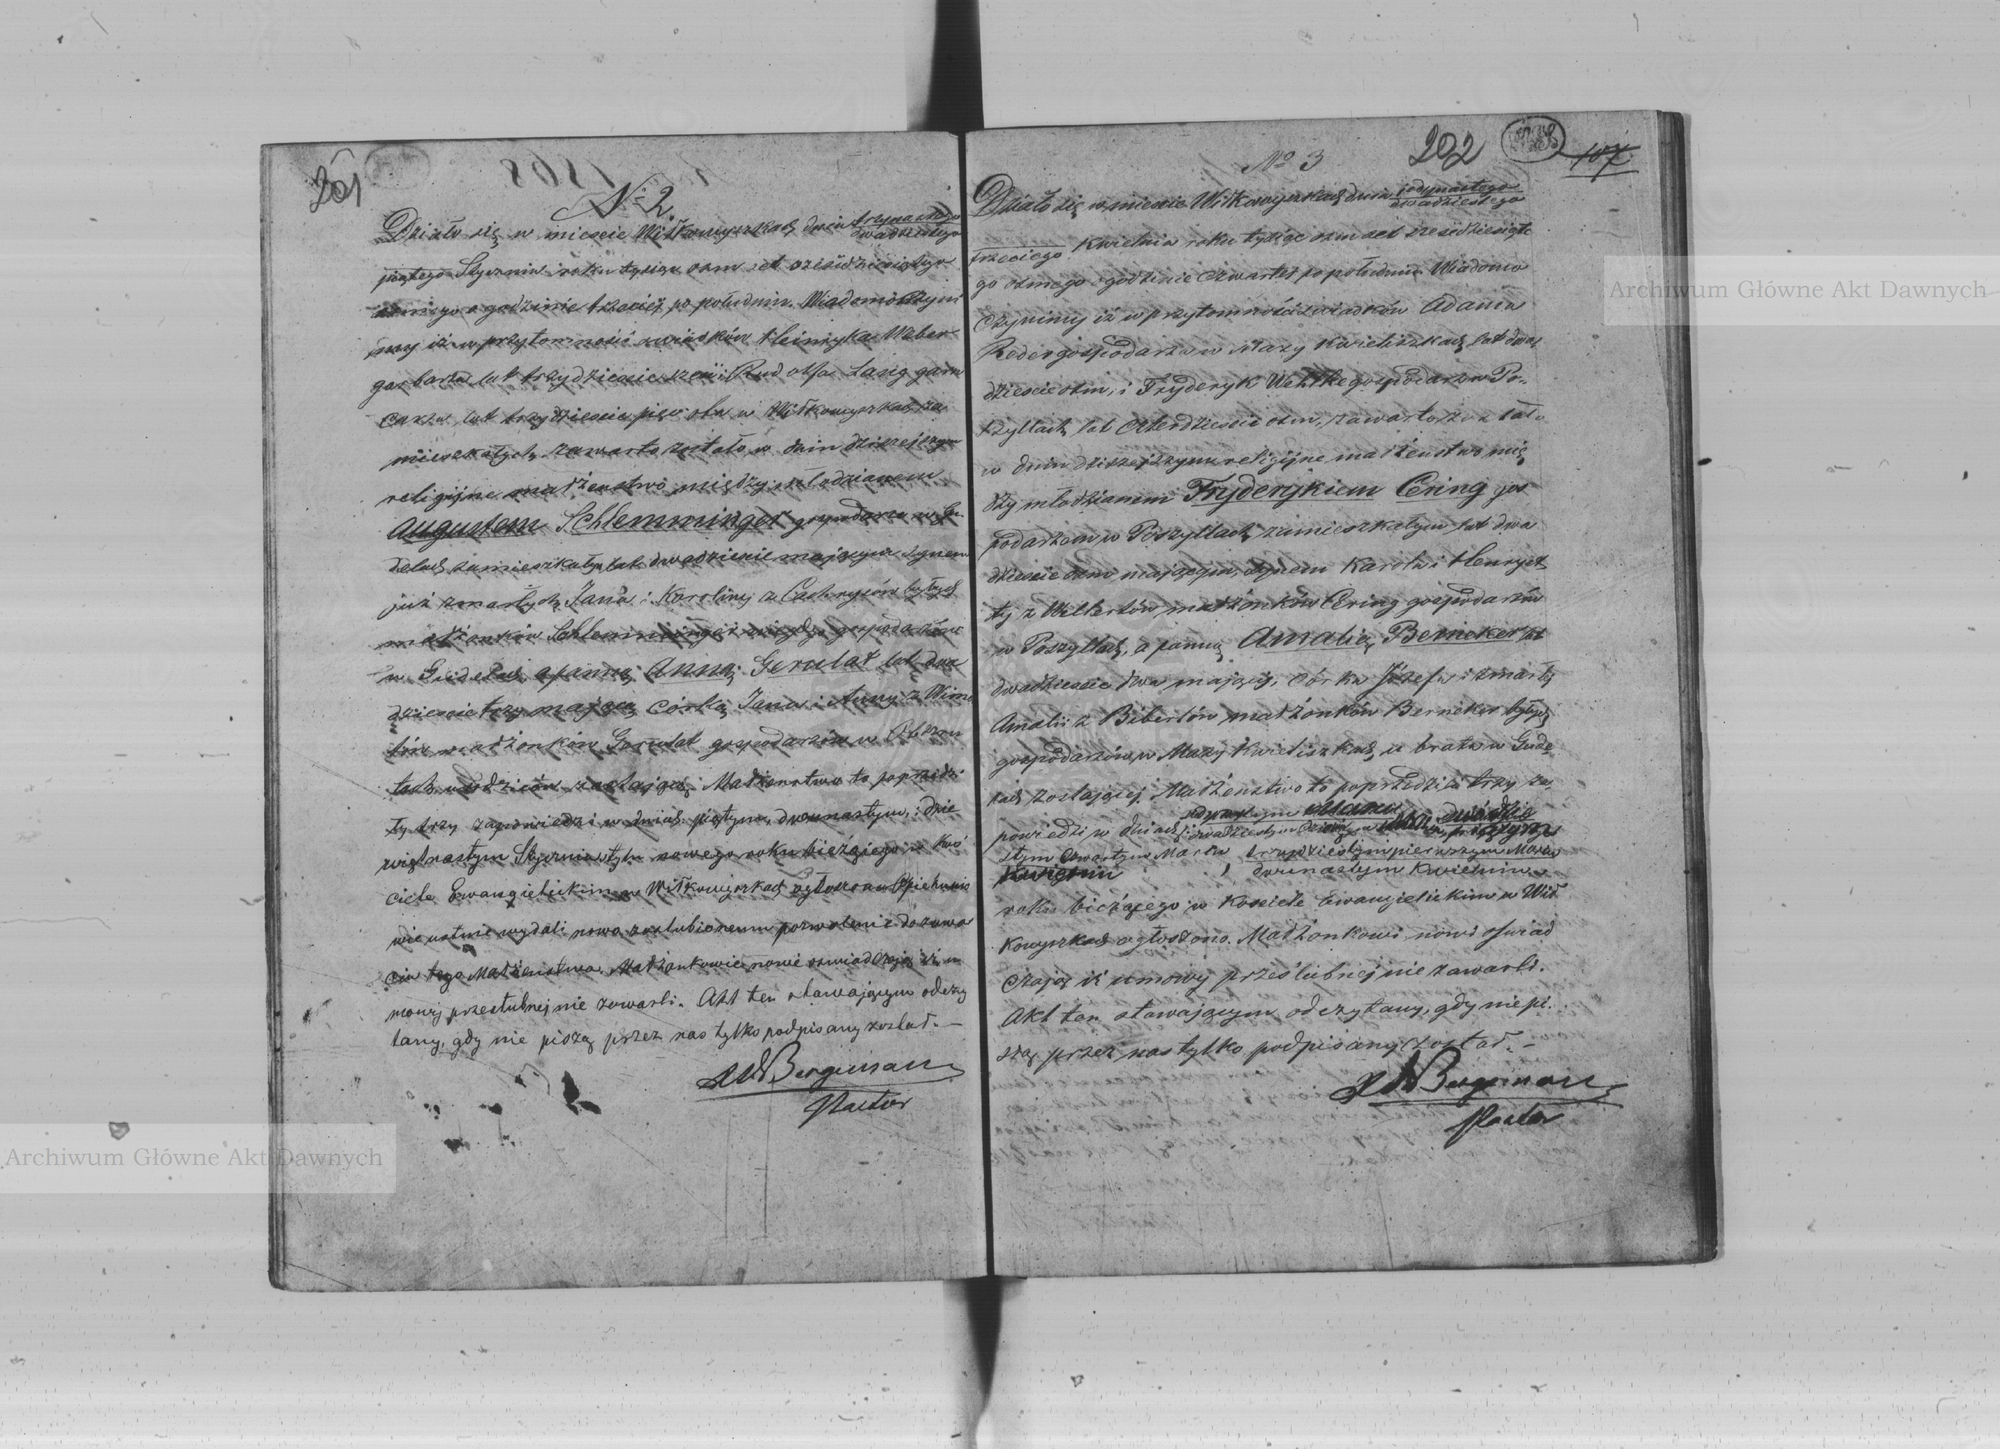 201
No 2.
Działo się w mieście Wiłkowyszkach dnia trzynastego
dwudziestego
piątego Stycznia roku tysiąc ośm set sześćdziesiątego
ósmego o godzinie trzeciej po południu. Wiadomo czyni
my iż w przytomności świadków Heinryka Weber
garbarza lat trzydzieście sześć i Rudolfa Lasig garn
carza lat trzydzieście pięć obu w Wiłkowyszkach za
mieszkałych, zawarte zostało w dniu dzisiejszym
religijne małżeństwo między młodzianem
Augustem Schlemminger gospodarzem w Gu
delach zamieszkałym lat dwadzieście mającym synem
już zmarłych Jana i Karoliny z byłych
małżonków Schlemminger gospodarzów
w Gudelach, a panną Anną Gerulat lat dwa
dzieście trzy mającą córką Jana i Anny z
małżonków Gerulat gospodarzów w Obszru
tach rodziców zostającą. Małżeństwo to poprzedzi
ły trzy zapowiedzi w dniach piątym, dwunastym, i dzie
więtnastym Stycznia stylu nowego roku bieżącego w Koś
ciele Ewangielickim w Wiłkowyszkach ogłoszone Opiekunis
wie ustnie wydali nowo zaślubionemu pozwolenie do zawar
cia tego Małżeństwa. Małżonkowie nowi oświadczają iż u
mowy prześlubnej nie zawarli. Akt ten stawającym odczy
tany, gdy nie piszą przez nas tylko podpisany został. —
Bergman
Pastor
202
107
No 3
Działo się w mieście Wiłkowyszkach dnia jedynastego
dwudziestego
trzeciego Kwietnia roku tysiąc ośm set sześćdziesiąte
go ósmego o godzinie czwartej po południu. Wiadomo
czynimy iż w przytomności świadków Adama
Reder gospodarza w Mazy Kwieliszkach lat dwa
dzieście ośm, i Fryderyk gospodarza w Po-
szyłlach lat czterdzieście ośm, zawarte zostało
w dniu dzisiejszym religijne małżeństwo mię
dzy młodzianem Fryderykiem Cering gos
podarzem w Poszyłlach zamieszkałym lat dwa
dzieście ośm mającym, synem Karola i Henryet
ty z Weltertów małżonków Cering gospodarzów
w Poszyłlach, a panną Amalią Berneker lat
dwadzieście dwa mającej, córka Józefa i zmarły
Amalii z Bibertów małżonków Berneker byłych
gospodarzów w Mazy Kwieliszkach u brata w Gude
lach zostającej. Małżeństwo to poprzedzili trzy za
powiedzi w dniach
stym czwartym Marca trzydziestym pierwszym Marca
Kwietnia dwunastym Kwietnia
roku bieżącego w Kościele Ewangielickim w Wił
kowyszkach ogłoszone. Małżonkowi nowi oświad
czają iż umowy prześlubnej nie zawarli.
Akt ten stawającym odczytany, gdy niepi.
szą przez nas tylko podpisany został. —
Bergman
Pastor
Archiwum Główne Akt Dawnych
Archiwum Główne Akt Dawnych